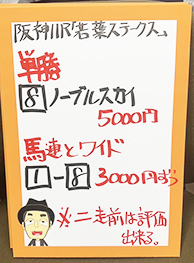 阪神11R「若葉ステークス」
単勝
8 ノーブルスカイ
5000円
馬連とワイド
1-8 3000円ずつ
※二走前は評価
出来る。